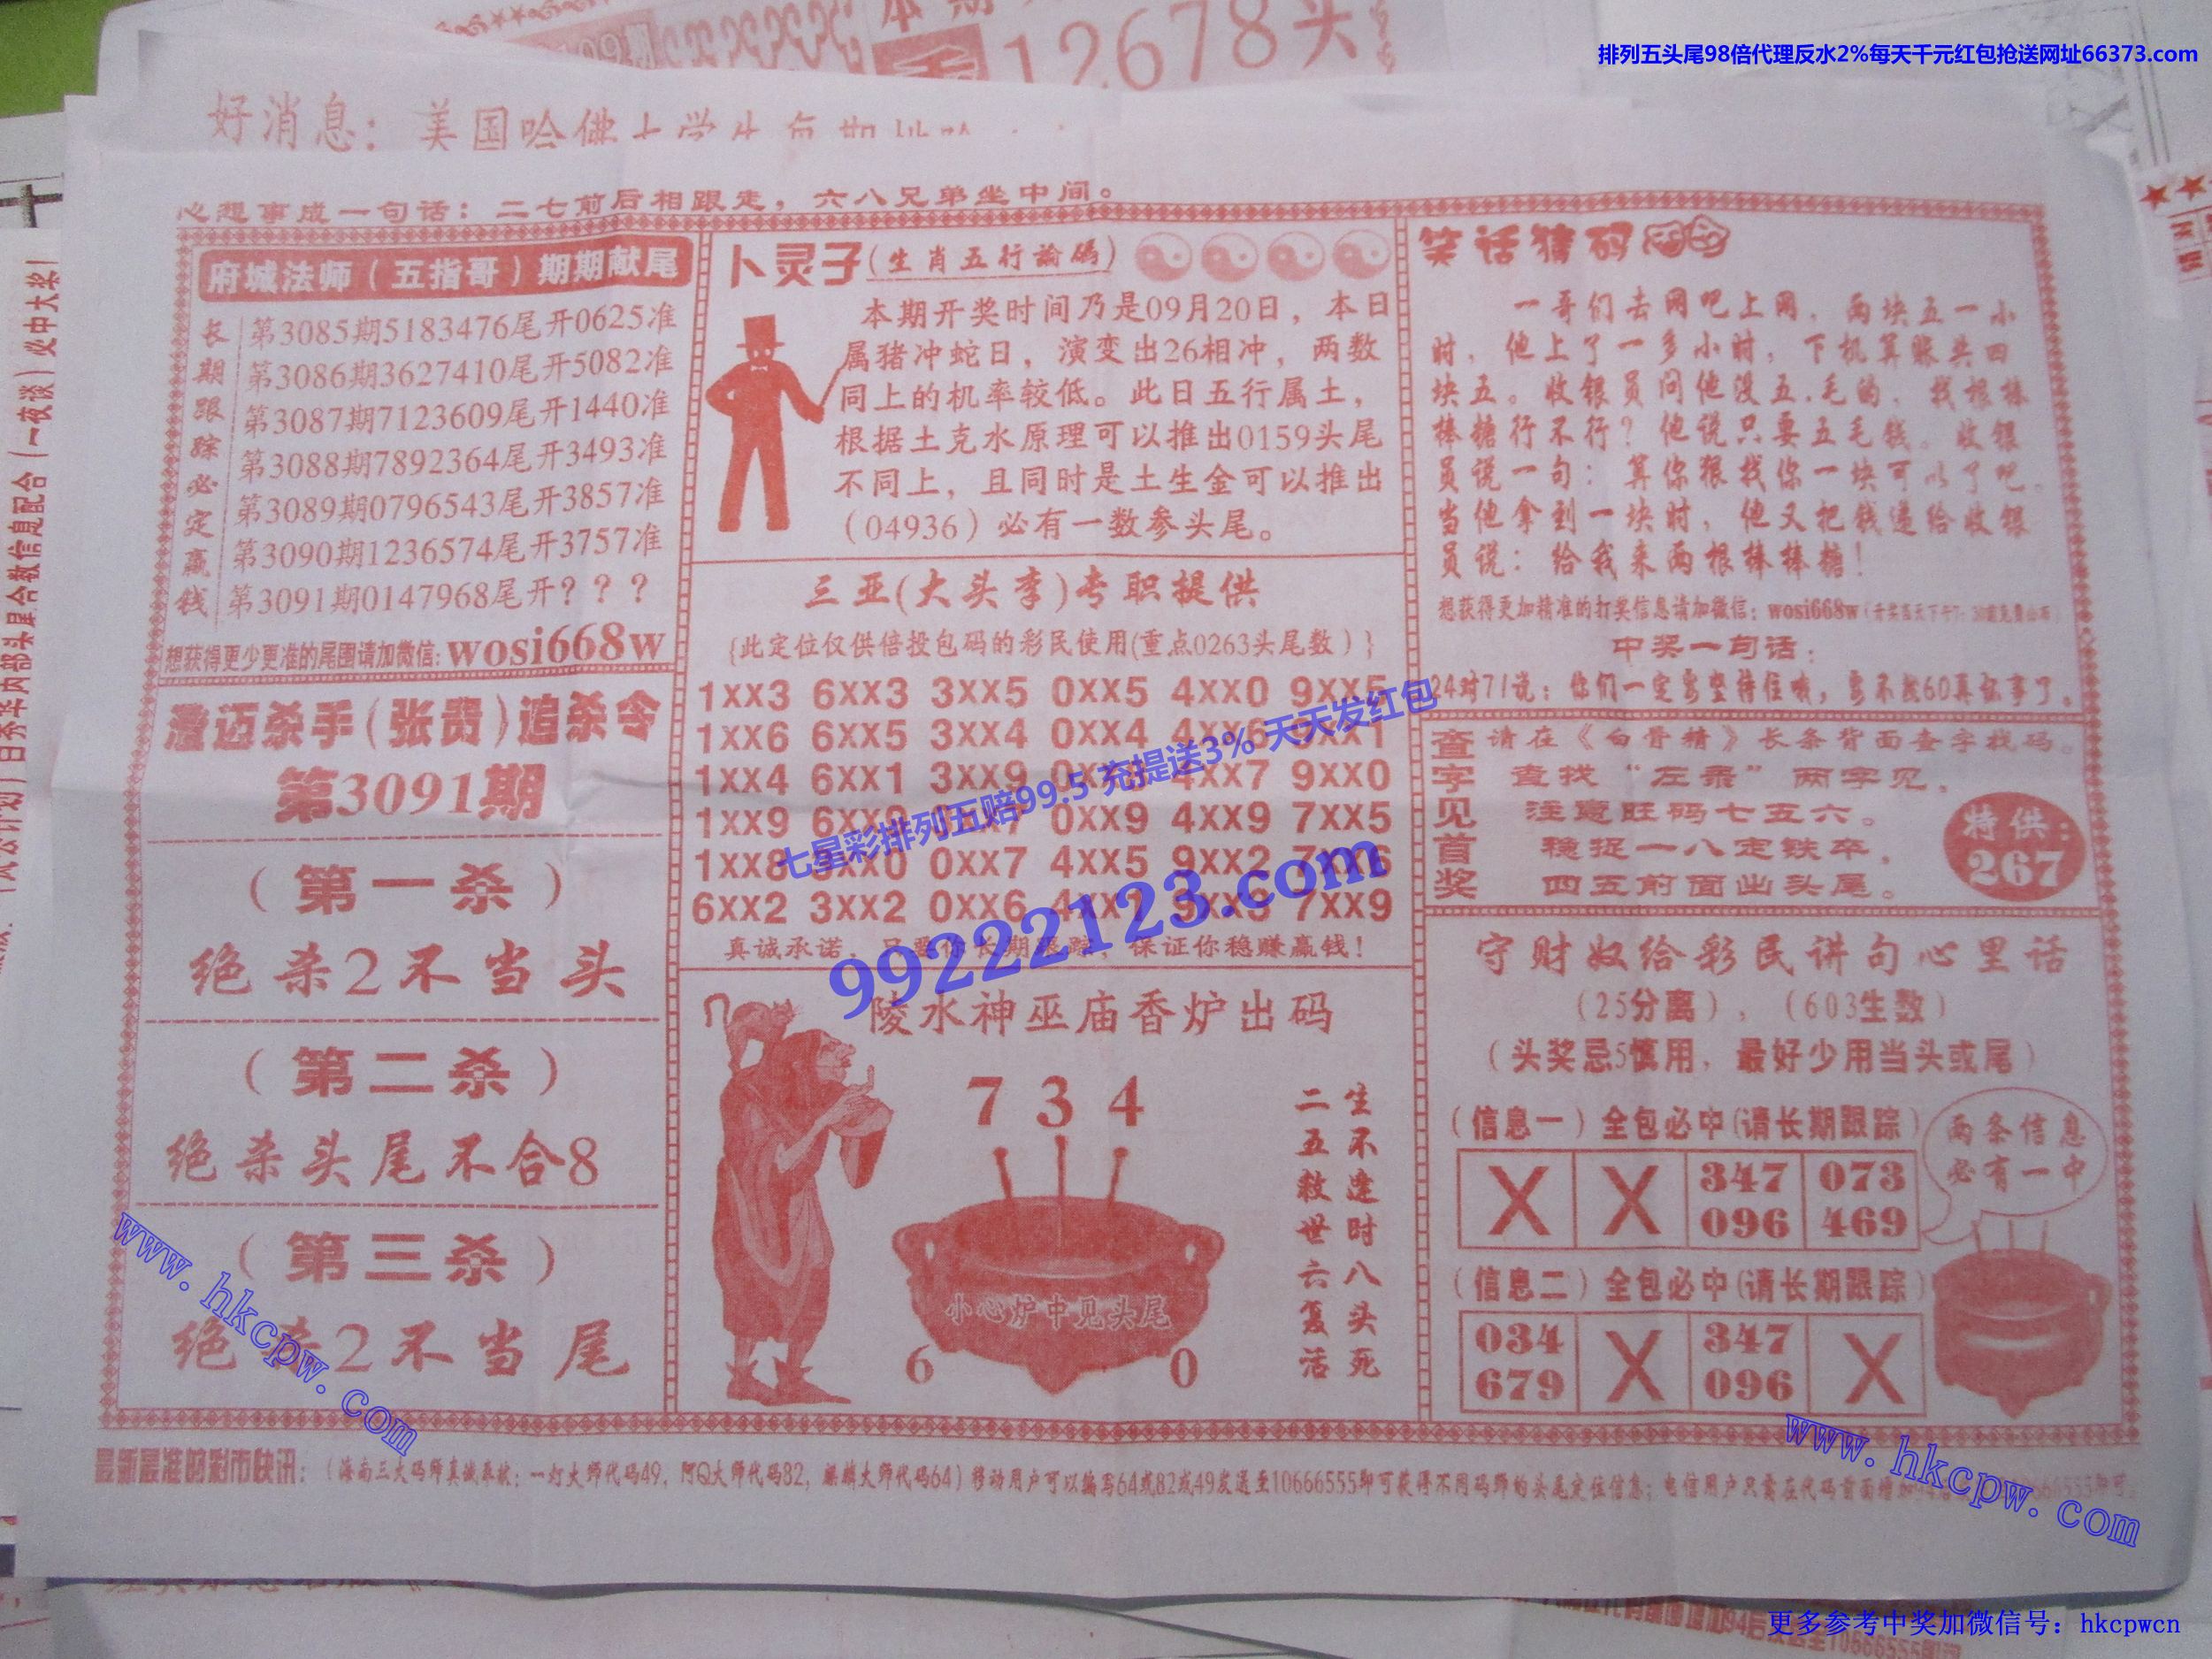 排列五头尾98倍代理反水2%每天千元红包抢送网址66373.com
12678头
好消息：美国哈佛大学生
心想事成一句话：二七前后相跟走，六八兄弟坐中间。
府城法师（五指哥）期期献尾
长期跟踪必定赢钱
第3085期5183476尾开0625准
第3086期3627410尾开5082准
第3087期7123609尾开1440准
第3088期7892364尾开3493准
第3089期0796543尾开3857准
第3090期1236574尾开3757准
第3091期0147968尾开？？？
想获得更少更准的尾围请加微信：wosi668w
澄迈杀手（张贵）追杀令
第3091期
（第一杀）
绝杀2不当头
（第二杀）
绝杀头尾不合8
（第三杀）
绝杀2不当尾
卜灵子（生肖五行論码）
本期开奖时间乃是09月20日，本日
属猪冲蛇日，演变出26相冲，两数
同上的机率较低。此日五行属土，
根据土克水原理可以推出0159头尾
不同上，且同时是土生金可以推出
（04936）必有一数参头尾。
三亚（大头李）专职提供
{此定位仅供倍投包码的彩民使用(重点0263头尾数）}
1XX3 6XX3 3XX5 0XX5 4XX0 9XX5
1XX6 6XX5 3XX4 0XX4 4XX6 9XX1
1XX4 6XX1 3XX9 4XX7 9XX0
1XX9 0XX9 4XX9 7XX5
1XX8 0XX7 4XX5 9XX2 7XX6
6XX2 3XX2 0XX6 7XX9
真诚承诺，只要你长期跟踪，保证你稳赚赢钱！
七星彩排列五赔99.5 充提送3% 天天发红包
99222123.com
陵水神巫庙香炉出码
7 3 4
小心炉中见头尾
6 0
生不逢时八头死
二五救世六复活
笑话猜码
一哥们去网吧上网，两块五一小
时，他上了一多小时，下机算账共四
块五。收银员问他没五毛的，找根棒
棒糖行不行？他说只要五毛钱。收银
员说一句：算你狠找你一块可以了吧。
当他拿到一块时，他又把钱递给收银
员说：给我来两根棒棒糖！
想获得更加精准的打奖信息请加微信：wosi668w
中奖一句话：
24对71说：你们一定要坚持住哦，要不然60真坏事了。
查字见首奖
请在《白骨精》长条背面查字找码。
查找“左录”两字见，
注意旺码七五六。
稳捉一八定铁卒，
四五前面出头尾。
特供：
267
守财奴给彩民讲句心里话
（25分离），（603生数）
（头奖忌5慎用，最好少用当头或尾）
（信息一）全包必中(请长期跟踪）
X X 347 073
096 469
两条信息
必有一中
（信息二）全包必中(请长期跟踪）
034 X 347 X
679 096
最新最准的彩市快讯：（海南三大码师真诚奉献：一灯大师代码49，阿Q大师代码82，麒麟大师代码64）移动用户可以编写64或82或49发送至10666555即可获得不同码师的头尾定位信息；电信用户只需在代码前面增加
www.hkcpw.com
www.hkcpw.com
更多参考中奖加微信号：hkcpwcn